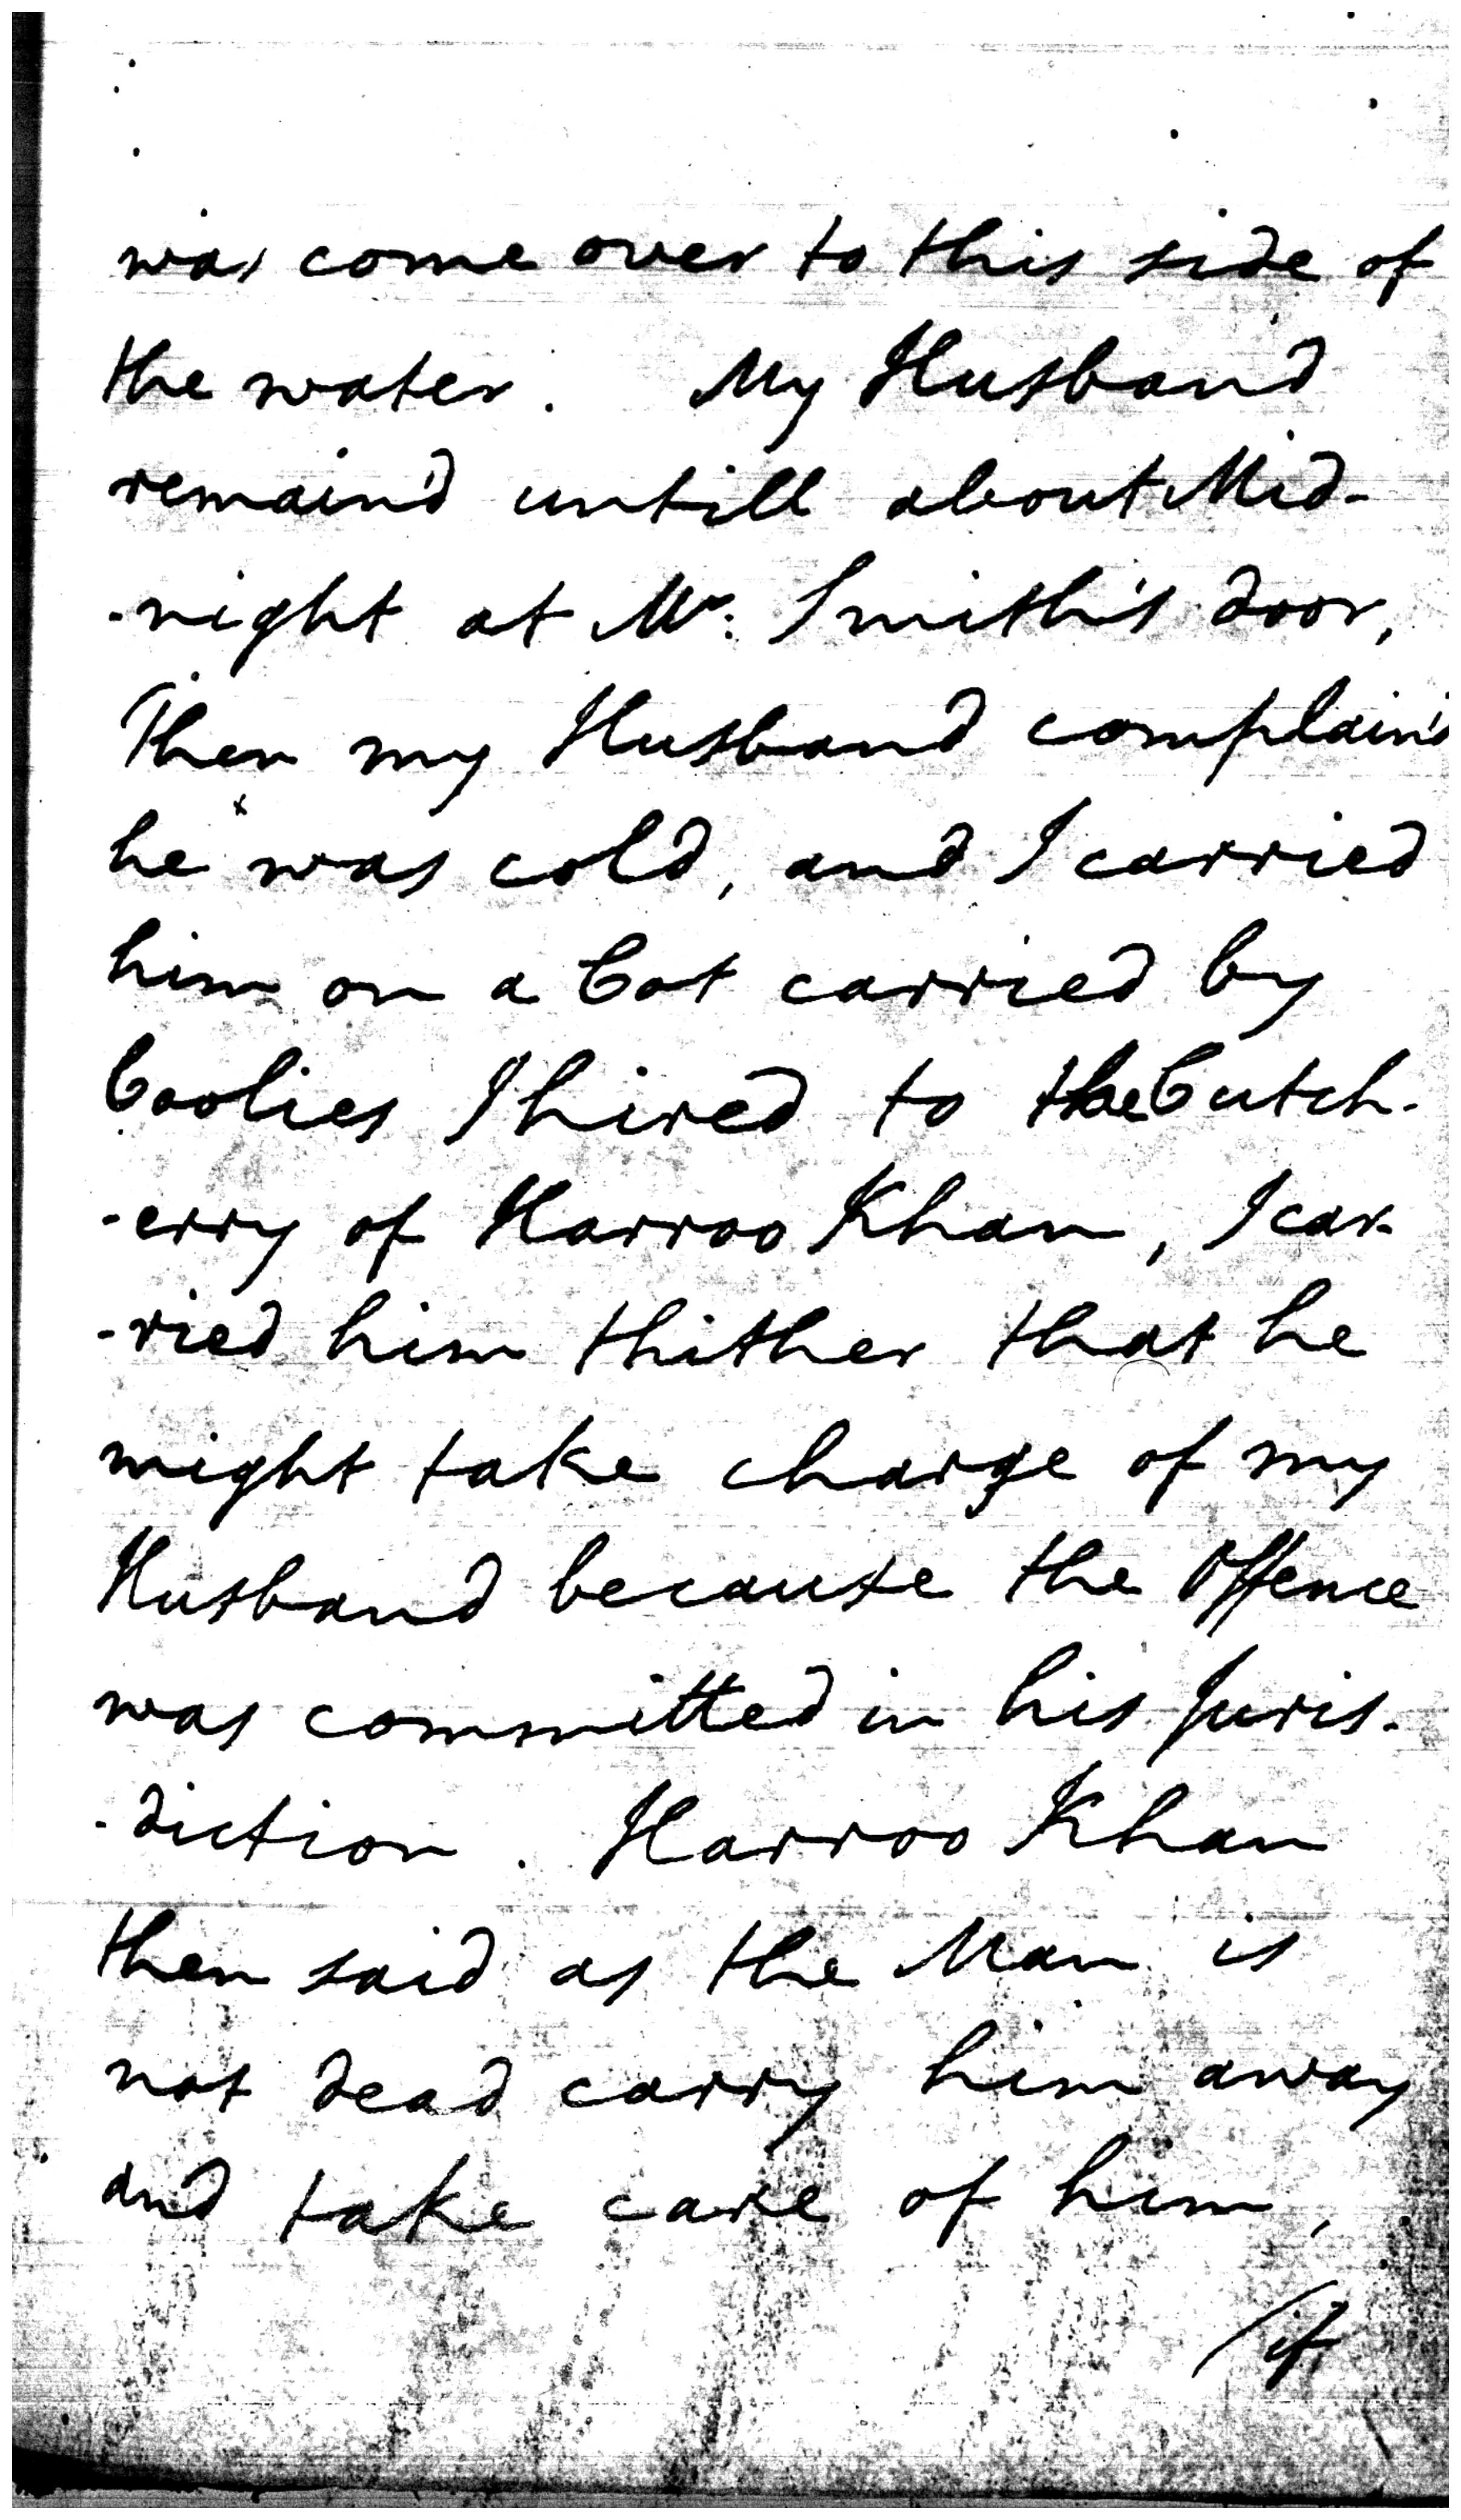 was come over to this side of
the water. My Husband
remain'd untill about Mid-
-night at Mr: Smith's door,
Then my Husband complain'd
he was cold, and I carried
him on a Cot carried by
Coolies I hired to the Cutch-
-erry of Harroo Khan, I car-
-ried him thither that he
might take charge of my
Husband because the Offence
was committed in his Juris-
-diction. Harroo Khan
then said as the Man is
not dead carry him away
and take care of him,
if